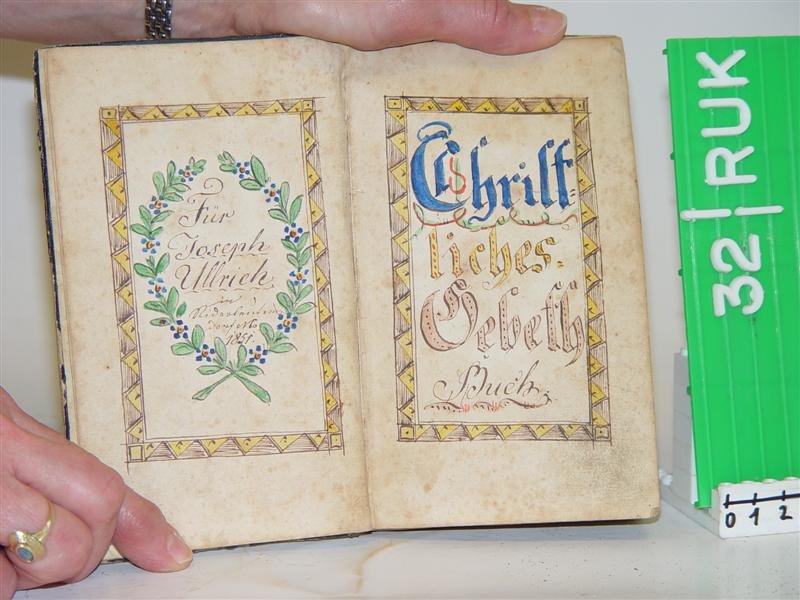 Für
Joseph
Ullrich
in
1851.
Christ
liches:
Gebeth
Buch
32 | RUK
0 1 2